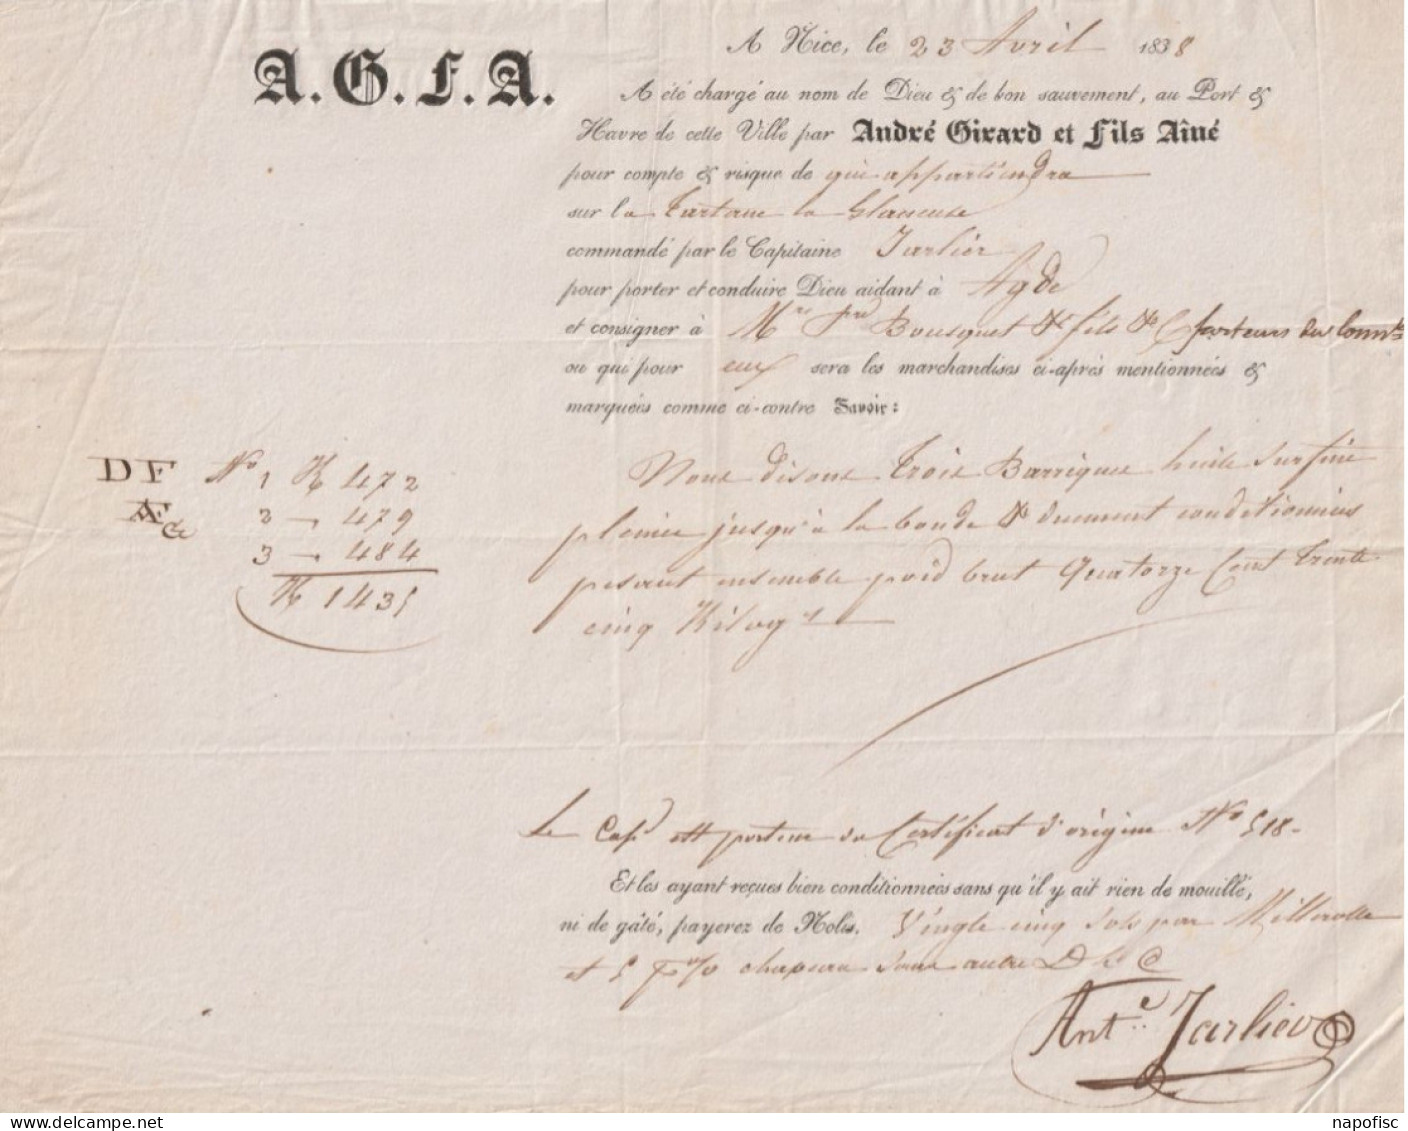 A Nice, le 23 Avril 1838
A.G.F.A.
A été chargé au nom de Dieu & de bon sauvement, au Port &
Havre de cette Ville par André Girard et Fils Aîné
pour compte & risque de qui appartiendra
sur la Tartane la Glaneuse
commandé par le Capitaine Jarlier
pour porter et conduire Dieu aidant à Agde
et consigner à Mrs Bousquet & fils & C porteurs du
ou qui pour eux sera les marchandises ci-après mentionnées &
marquées comme ci-contre Savoir:
DF No 1 K 472
2 - 479
3 - 484
K 1435
Nous disons Trois Barriques huile Surfine
pleines jusqu'à la bonde & duement conditionnées
pesant ensemble poid brut Quatorze Cent trente
cinq Kilogs
Le Capne est porteur du Certificat d'origine No 518-
Et les ayant reçues bien conditionnées sans qu'il y ait rien de mouillé,
ni de gâté, payerez de Nolis. Vingt cinq sols par Millerolle
et 5 p% chapeau sans autre
Ante Jarlier
napofisc